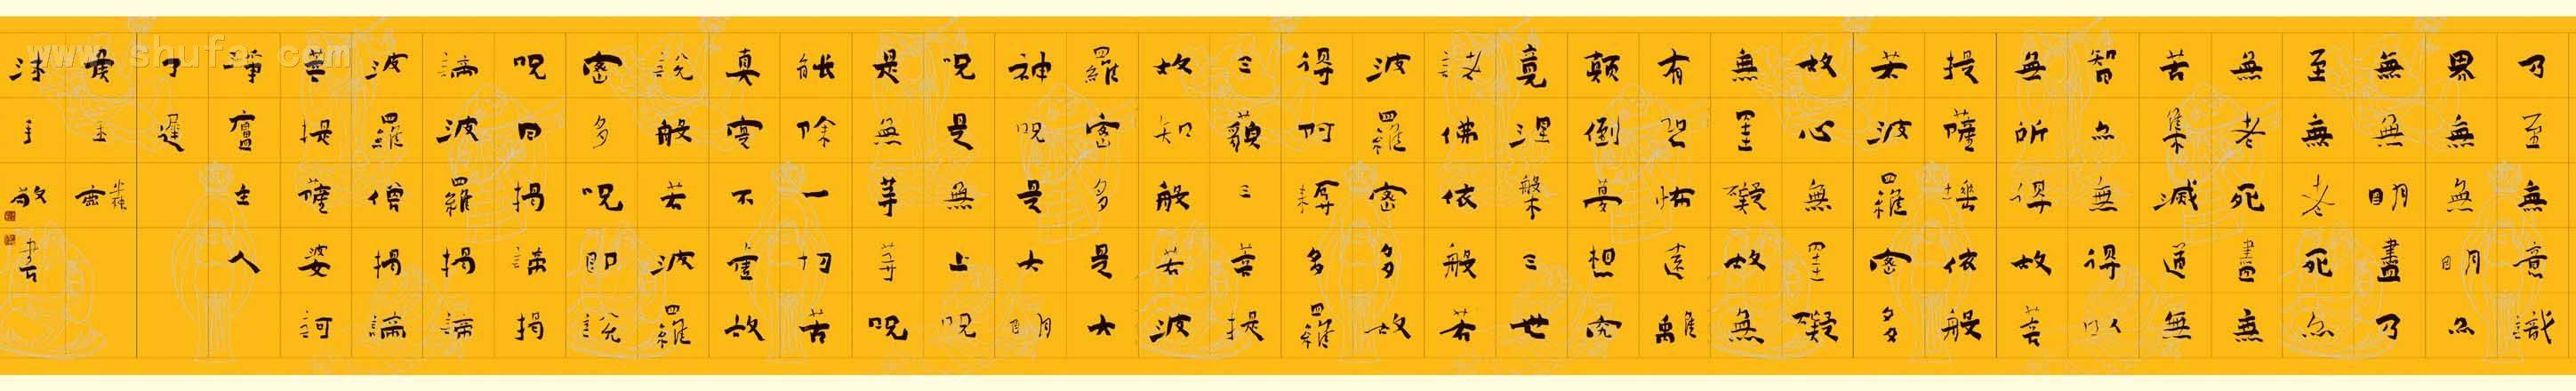 乃至無意識
界無無明亦
無無明盡乃
至無老死亦
無老死盡無
苦集滅道無
智亦無得以
無所得故菩
提薩埵依般
若波羅密多
故心無罣礙
無罣礙故無
有恐怖遠離
顛倒夢想究
竟涅槃三世
諸佛依般若
波羅密多故
得阿耨多羅
三藐三菩提
故知般若波
羅密多是大
神呪是大明
呪是無上呪
是無等等呪
能除一切苦
真實不虛故
說般若波羅
密多呪即說
呪曰揭諦揭
諦波羅揭諦
波羅僧揭諦
菩提薩婆訶
主人
沐手敬書
www.shufa.com